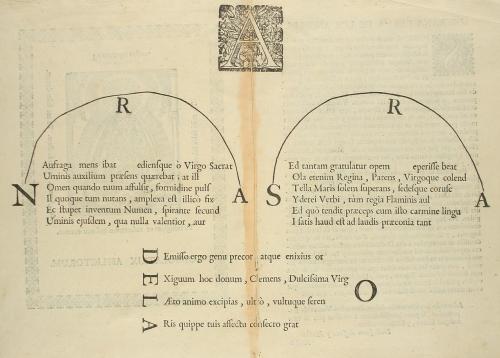 A
R
R
N
A
S
A
Aufraga mens ibat ediensque ò Virgo Sacrat
Uminis auxilium præsens quærebat; at ill
Omen quando tuum affulsit, formidine pulf
Il quoque tum nutans, amplexa est illico fix
Ec stupet inventum Numen, spirante secund
Uminis ejusdem, qua nulla valentior, aur
Ed tantam gratulatur opem eperisse beat
Ola etenim Regina, Parens, Virgoque colend
Tella Maris solem superans, sedesque corusc
Yderei Verbi, tum regia Flaminis aul
Ed quò tendit præceps cum illo carmine lingu
I satis haud est ad laudis præconia tant
D Emisso ergo genu precor atque enixius or
E Xiguum hoc donum, Clemens, Dulcissima Virg
L Æto animo excipias, ultò, vultuque seren
A Ris quippe tuis affectu consecto grat
O